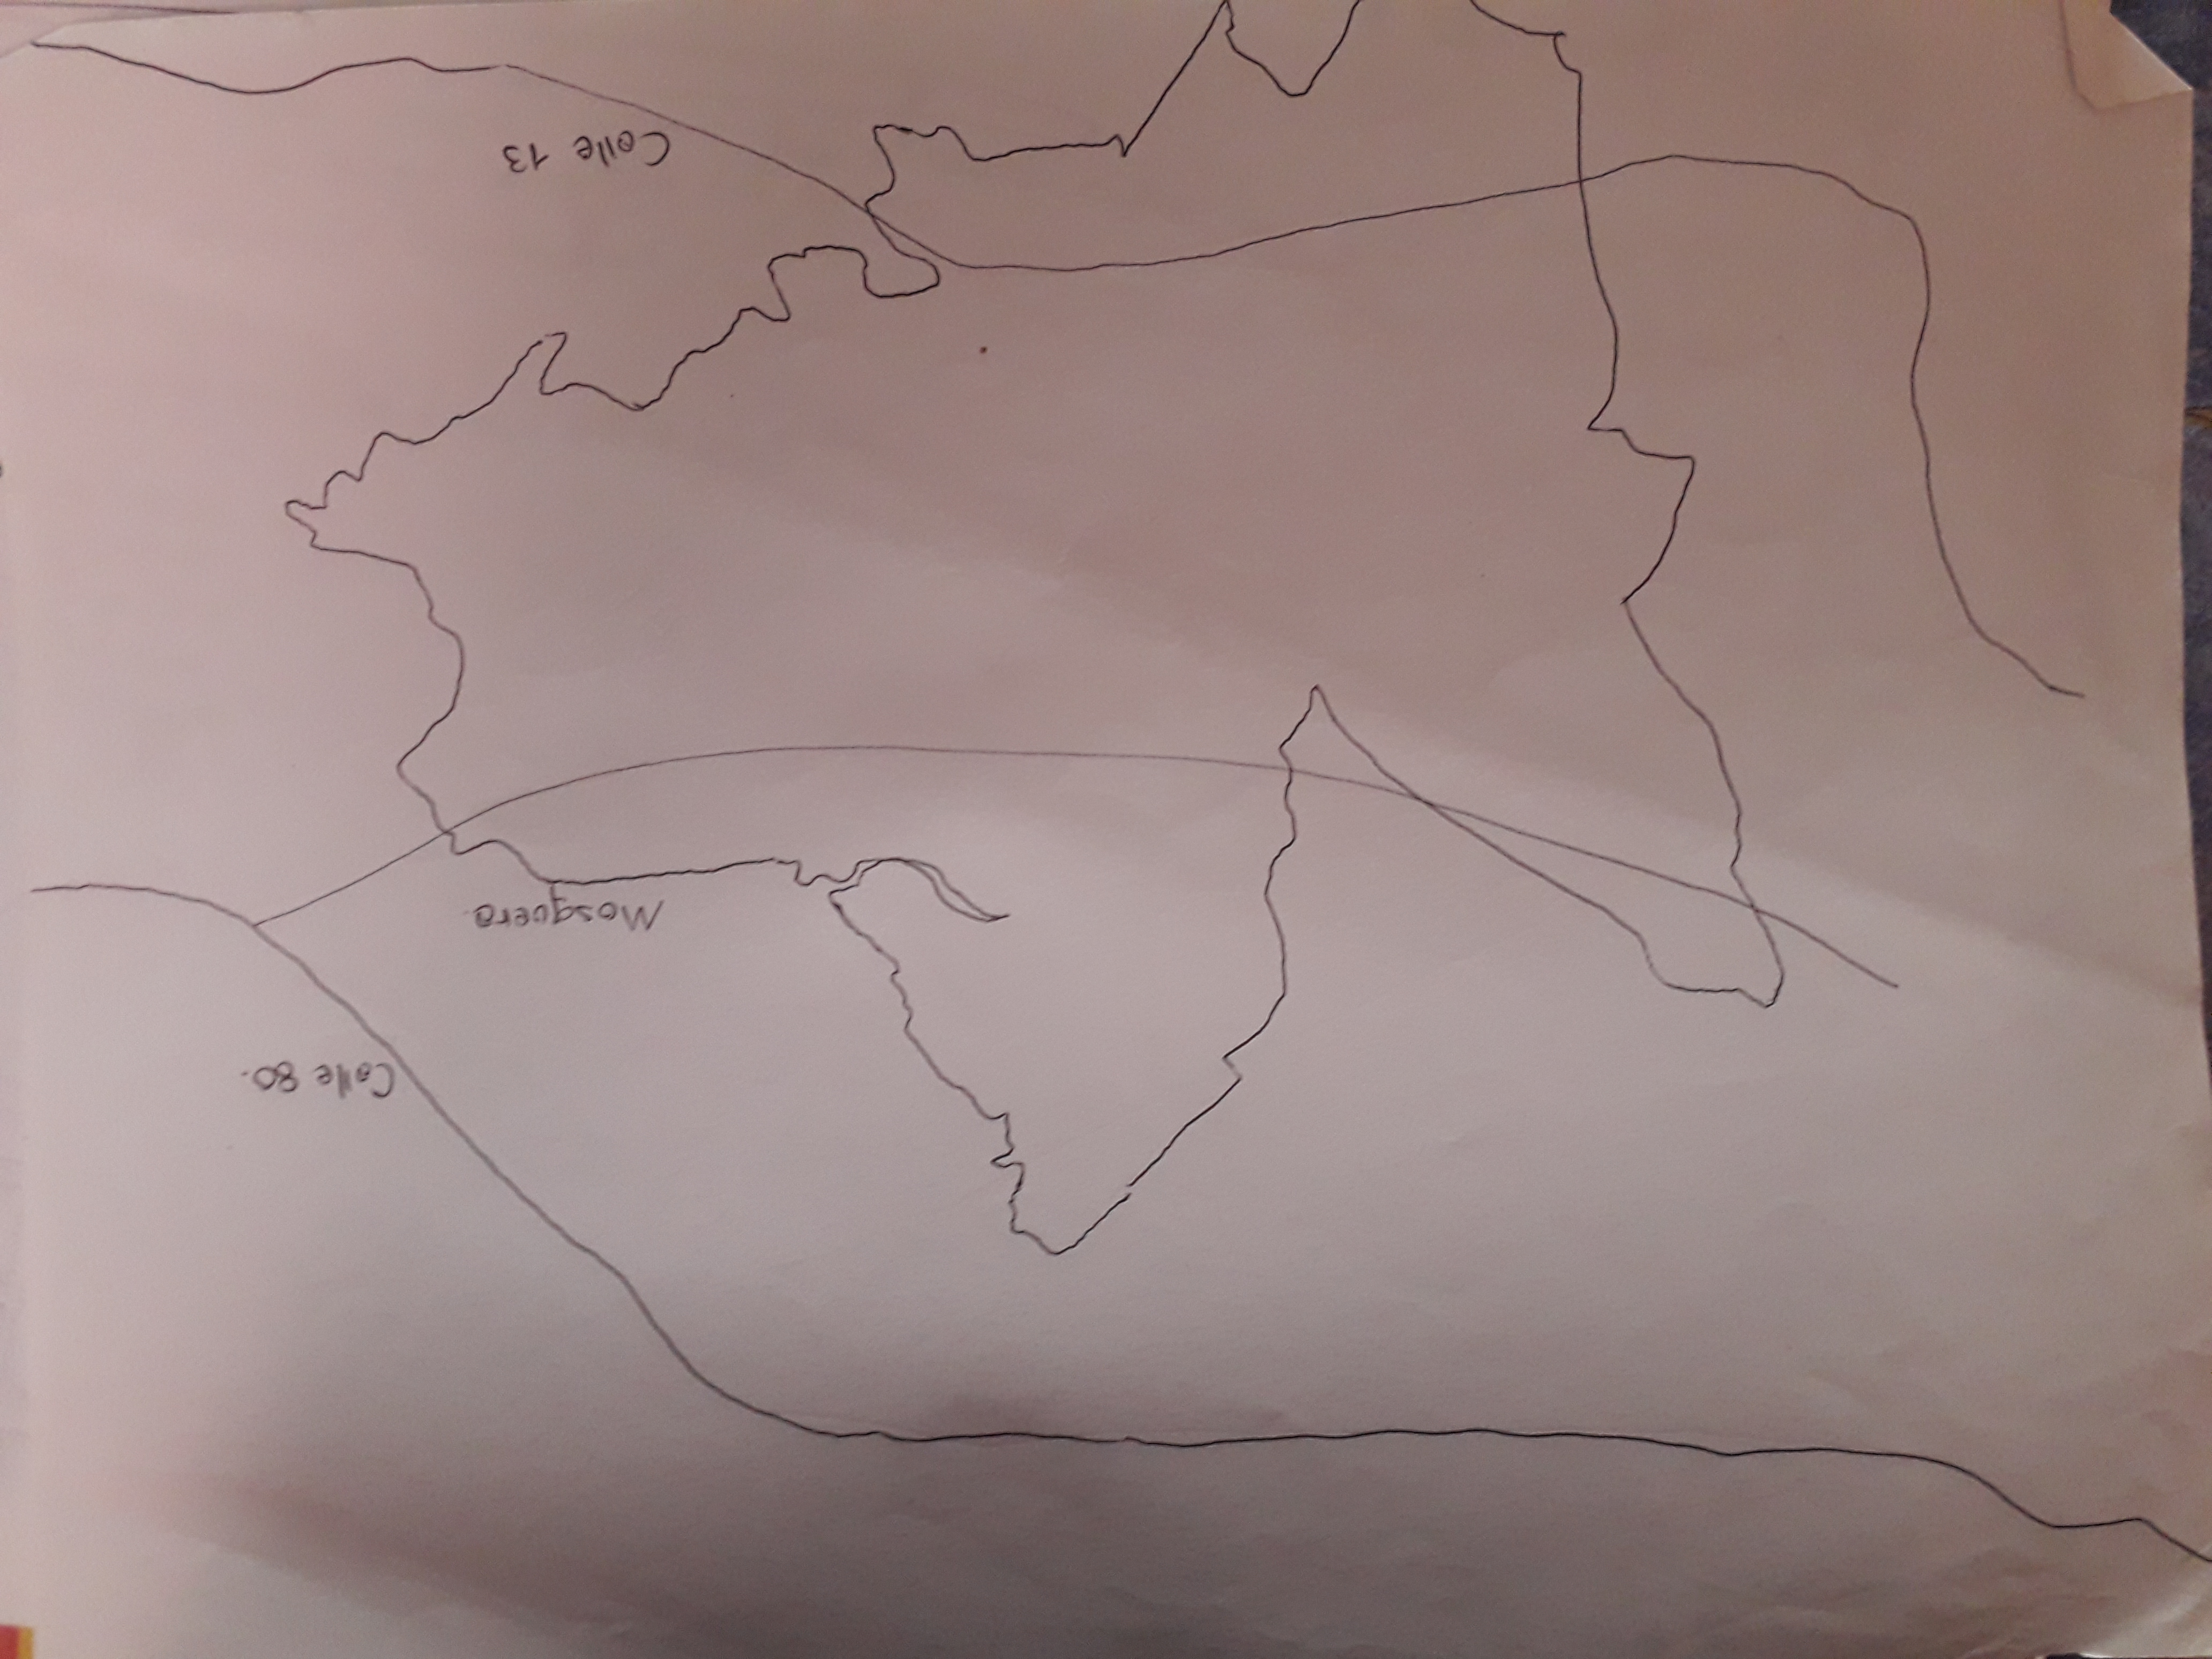 Calle 80.
Mosquera.
Calle 13